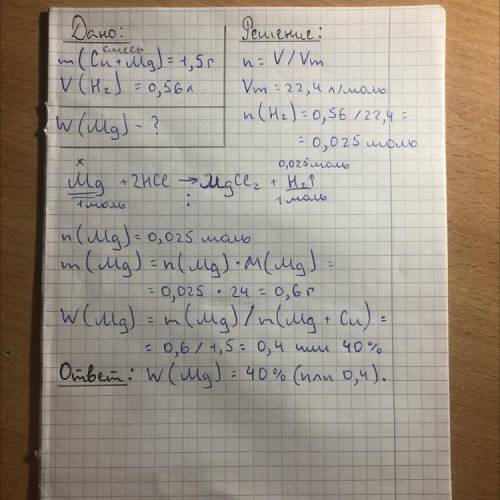 Дано:
смесь
m(Cu+Mg)=1,5г
V(H₂) = 0,56л
W(Mg) - ?
Решение:
n = V/Vm
Vm = 22,4 л/моль
n(H₂)=0,56/22,4=
= 0,025 моль
x 0,025моль
Mg + 2HCl → MgCl₂ + H₂↑
1моль 1моль
n(Mg)=0,025 моль
m(Mg) = n(Mg)·M(Mg) =
= 0,025 · 24 = 0,6г
W(Mg) = m(Mg)/m(Mg+Cu) =
= 0,6/1,5 = 0,4 или 40%
Ответ: W(Mg) = 40% (или 0,4).